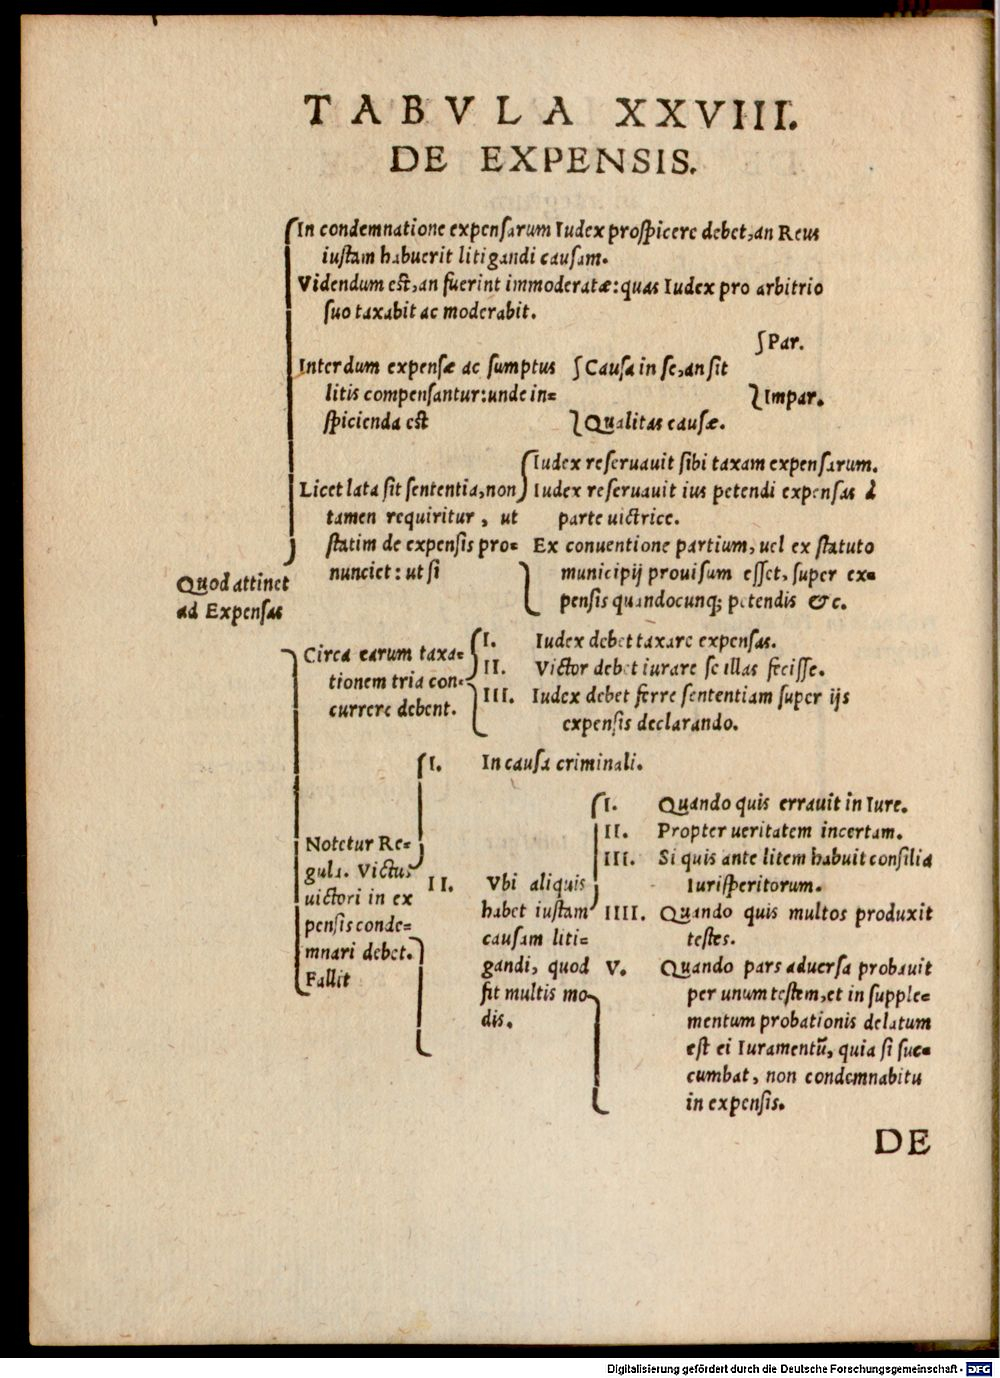 TABVLA XXVIII.
DE EXPENSIS.
In condemnatione expensarum Iudex prospicere debet, an Reus
iustam habuerit litigandi causam.
Videndum est, an fuerint immoderatæ: quas Iudex pro arbitrio
suo taxabit ac moderabit.
Interdum expensæ ac sumptus
litis compensantur: unde in=
spicienda est
Causa in se, an sit
Par.
Impar.
Qualitas causæ.
Licet lata sit sententia, non
tamen requiritur, ut
statim de expensis pro=
nunciet: ut si
Iudex reseruauit sibi taxam expensarum.
Iudex reseruauit ius petendi expensas à
parte uictrice.
Ex conuentione partium, uel ex statuto
municipij prouisum esset, super ex=
pensis quandocunq; petendis &c.
Quod attinet
ad Expensas
Circa earum taxa=
tionem tria con=
currere debent.
I. Iudex debet taxare expensas.
II. Victor debet iurare se illas fecisse.
III. Iudex debet ferre sententiam super ijs
expensis declarando.
Notetur Re=
gula. Victus
uictori in ex
pensis conde=
mnari debet.
Fallit
I. In causa criminali.
II. Vbi aliquis
habet iustam
causam liti=
gandi, quod
fit multis mo
dis.
I. Quando quis errauit in Iure.
II. Propter ueritatem incertam.
III. Si quis ante litem habuit consilia
Iurisperitorum.
IIII. Quando quis multos produxit
testes.
V. Quando pars aduersa probauit
per unum testem, et in supple=
mentum probationis delatum
est ei Iuramentũ, quia si suc=
cumbat, non condemnabitu
in expensis.
DE
Digitalisierung gefördert durch die Deutsche Forschungsgemeinschaft - DFG